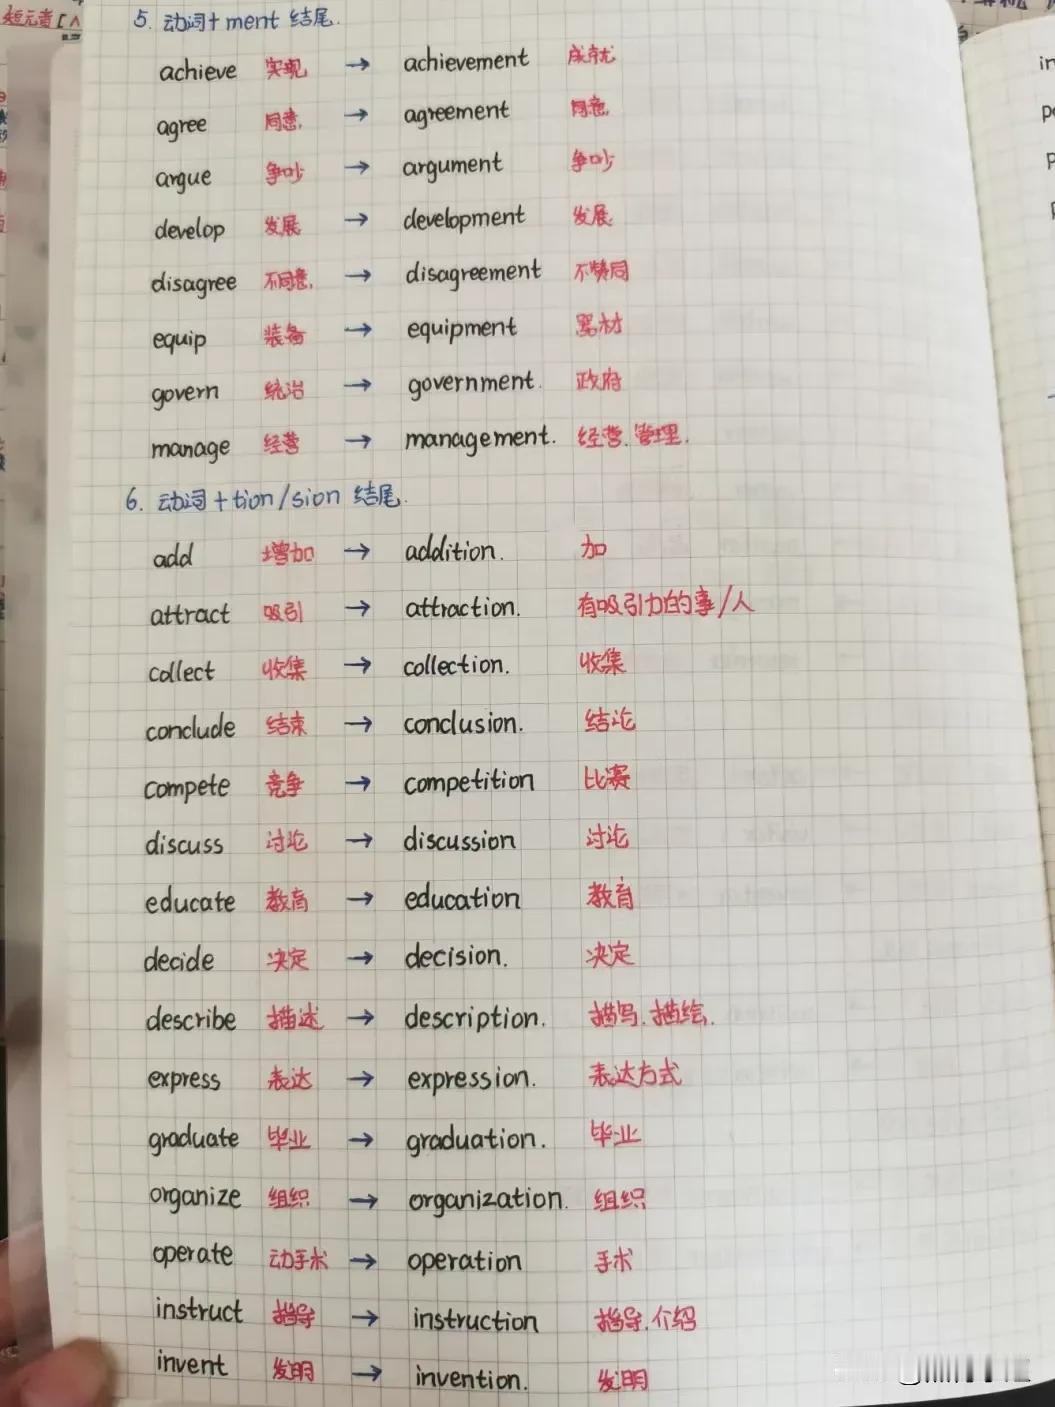 5. 动词+ment 结尾.
achieve 实现 → achievement 成就
agree 同意. → agreement 同意.
argue 争吵 → argument 争吵
develop 发展 → development 发展
disagree 不同意. → disagreement 不赞同
equip 装备 → equipment 器材
govern 统治 → government. 政府
manage 经营 → management. 经营. 管理.
6. 动词+tion/sion 结尾.
add 增加 → addition. 加
attract 吸引 → attraction. 有吸引力的事/人
collect 收集 → collection. 收集
conclude 结束 → conclusion. 结论
compete 竞争 → competition 比赛
discuss 讨论 → discussion 讨论
educate 教育 → education 教育
decide 决定 → decision. 决定
describe 描述 → description. 描写. 描绘.
express 表达 → expression. 表达方式
graduate 毕业 → graduation. 毕业
organize 组织 → organization. 组织
operate 动手术 → operation 手术
instruct 指导 → instruction 指导. 介绍
invent 发明 → invention. 发明